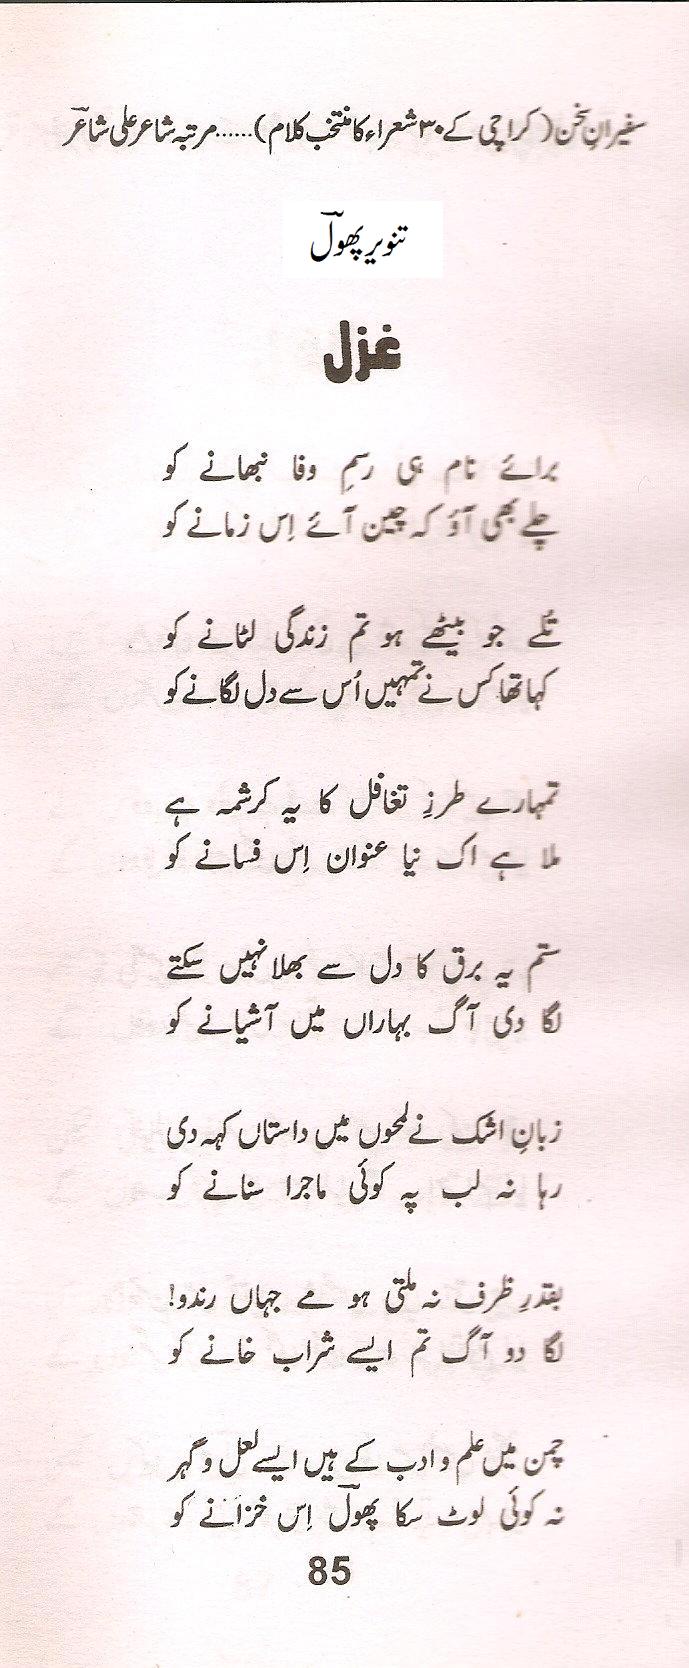 سفیرانِ سخن (کراچی کے ۳۰ شعراء کا منتخب کلام)......مرتبہ شاعر علی شاعرؔ
تنویر پھولؔ
غزل
برائے نام ہی رسمِ وفا نبھانے کو
چلے بھی آؤ کہ چین آئے اِس زمانے کو
تُلے جو بیٹھے ہو تم زندگی لٹانے کو
کہا تھا کس نے تمہیں اُس سے دل لگانے کو
تمہارے طرزِ تغافل کا یہ کرشمہ ہے
ملا ہے اک نیا عنوان اِس فسانے کو
ستم یہ برق کا دل سے بھلا نہیں سکتے
لگا دی آگ بہاراں میں آشیانے کو
زبانِ اشک نے لمحوں میں داستاں کہہ دی
رہا نہ لب پہ کوئی ماجرا سنانے کو
بقدرِ ظرف نہ ملتی ہو مے جہاں رندو!
لگا دو آگ تم ایسے شراب خانے کو
چمن میں علم و ادب کے ہیں ایسے لعل و گہر
نہ کوئی لوٹ سکا پھولؔ اِس خزانے کو
85